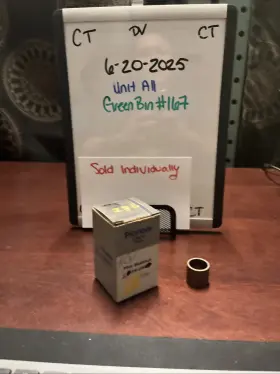 CT DV CT
6-20-2025
Unit All
Green Bin #167
Sold Individually
CT